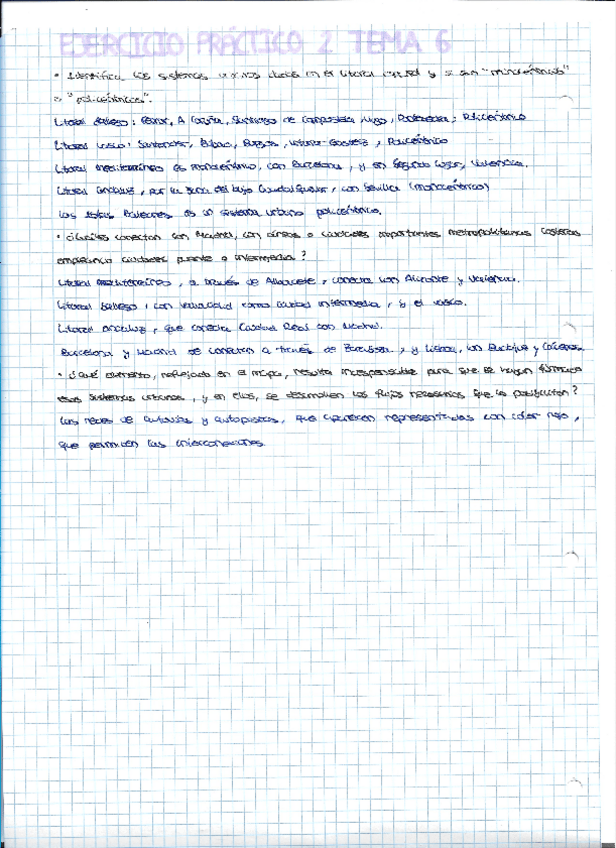 EJERCICIO PRÁCTICO 2 TEMA 6
• Identifica los sistemas urbanos en el litoral español y si son "monocéntricos"
o "policéntricos".
Litoral Gallego: Ferrol, A Coruña, Santiago de Compostela, Lugo, Pontevedra; Policéntrico
Litoral vasco: Santander, Bilbao, Burgos, Vitoria-Gasteiz, Policéntrico
Litoral mediterráneo es monocéntrico, con Barcelona, y en segundo lugar, Valencia.
Litoral andaluz, por la zona del bajo Guadalquivir, con Sevilla (monocéntrico)
Las Islas Baleares es un sistema urbano policéntrico.
• ¿Cuáles conectan con Madrid, con áreas o ciudades importantes metropolitanas costeras
empleando ciudades puente o intermedia?
Litoral mediterráneo, a través de Albacete, conecta con Alicante y Valencia.
Litoral Gallego, con Valladolid como ciudad intermedia, y el vasco.
Litoral andaluz, que conecta Ciudad Real con Madrid.
Barcelona y Madrid se conectan a través de Zaragoza, y Lisboa, con Badajoz y Cáceres.
• ¿Qué elemento, reflejado en el mapa, resulta indispensable para que se hayan formado
esos sistemas urbanos, y en ellos, se desarrollen los flujos necesarios que lo posibilitan?
Las redes de autovías y autopistas, que aparecen representadas con color rojo,
que permiten las interconexiones.